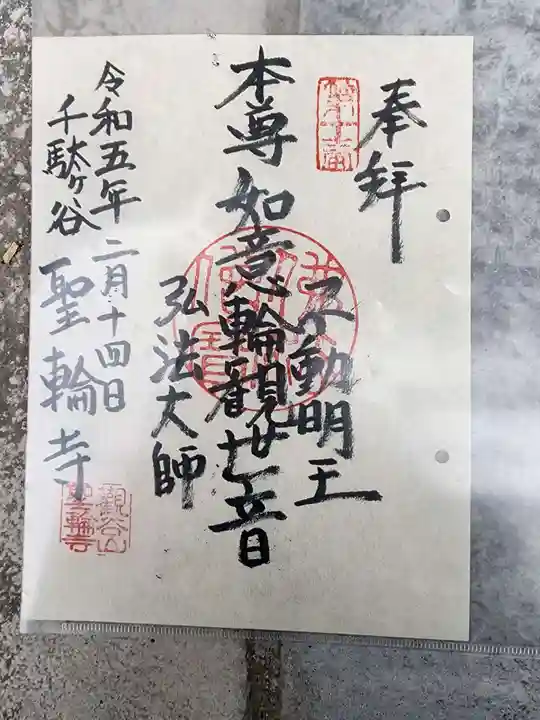 奉拝
不動明王
本尊如意輪觀世音
弘法大師
令和五年二月十四日
千駄ヶ谷
聖輪寺
觀谷山
聖輪寺